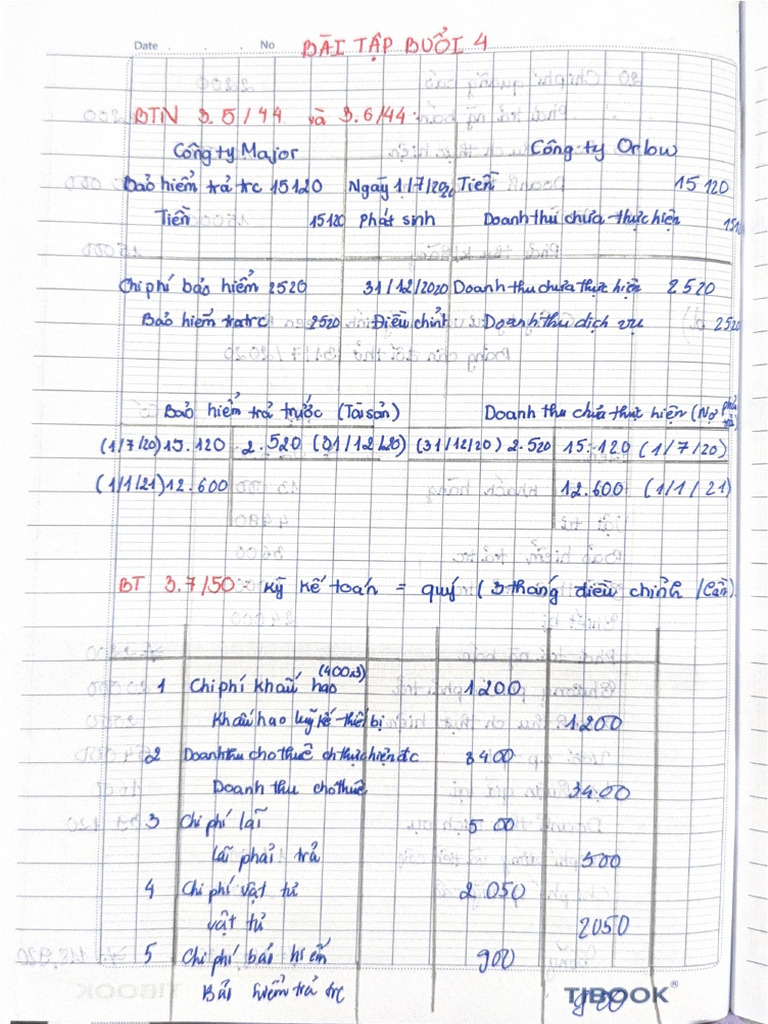 Date . . . No
BÀI TẬP BUỔI 4
BTVN 3.5/44 và 3.6/44:
Công ty Major Công ty Orlow
Bảo hiểm trả trc 15120 Ngày 1/7/2020 Tiền 15120
Tiền 15120 Phát sinh Doanh thu chưa thực hiện
Chi phí bảo hiểm 2520 31/12/2020 Doanh thu chưa thực hiện 2520
Bảo hiểm trả trc 2520 Điều chỉnh Doanh thu dịch vụ 2520
Bảo hiểm trả trước (Tài sản) Doanh thu chưa thực hiện (Nợ phải trả)
(1/7/20) 15.120 2.520 (31/12/20) (31/12/20) 2.520 15.120 (1/7/20)
(1/1/21) 12.600 12.600 (1/1/21)
BT 3.7/50 Kỳ kế toán = quý (3 tháng điều chỉnh 1 lần)
(400x3)
1 Chi phí khấu hao 1200
Khấu hao luỹ kế thiết bị 1200
2 Doanh thu cho thuê ch thực hiện đc 3400
Doanh thu cho thuê 3400
3 Chi phí lãi 500
Lãi phải trả 500
4 Chi phí vật tư 2050
Vật tư 2050
5 Chi phí bảo hiểm 900
Bảo hiểm trả trc 900
TIBOOK®